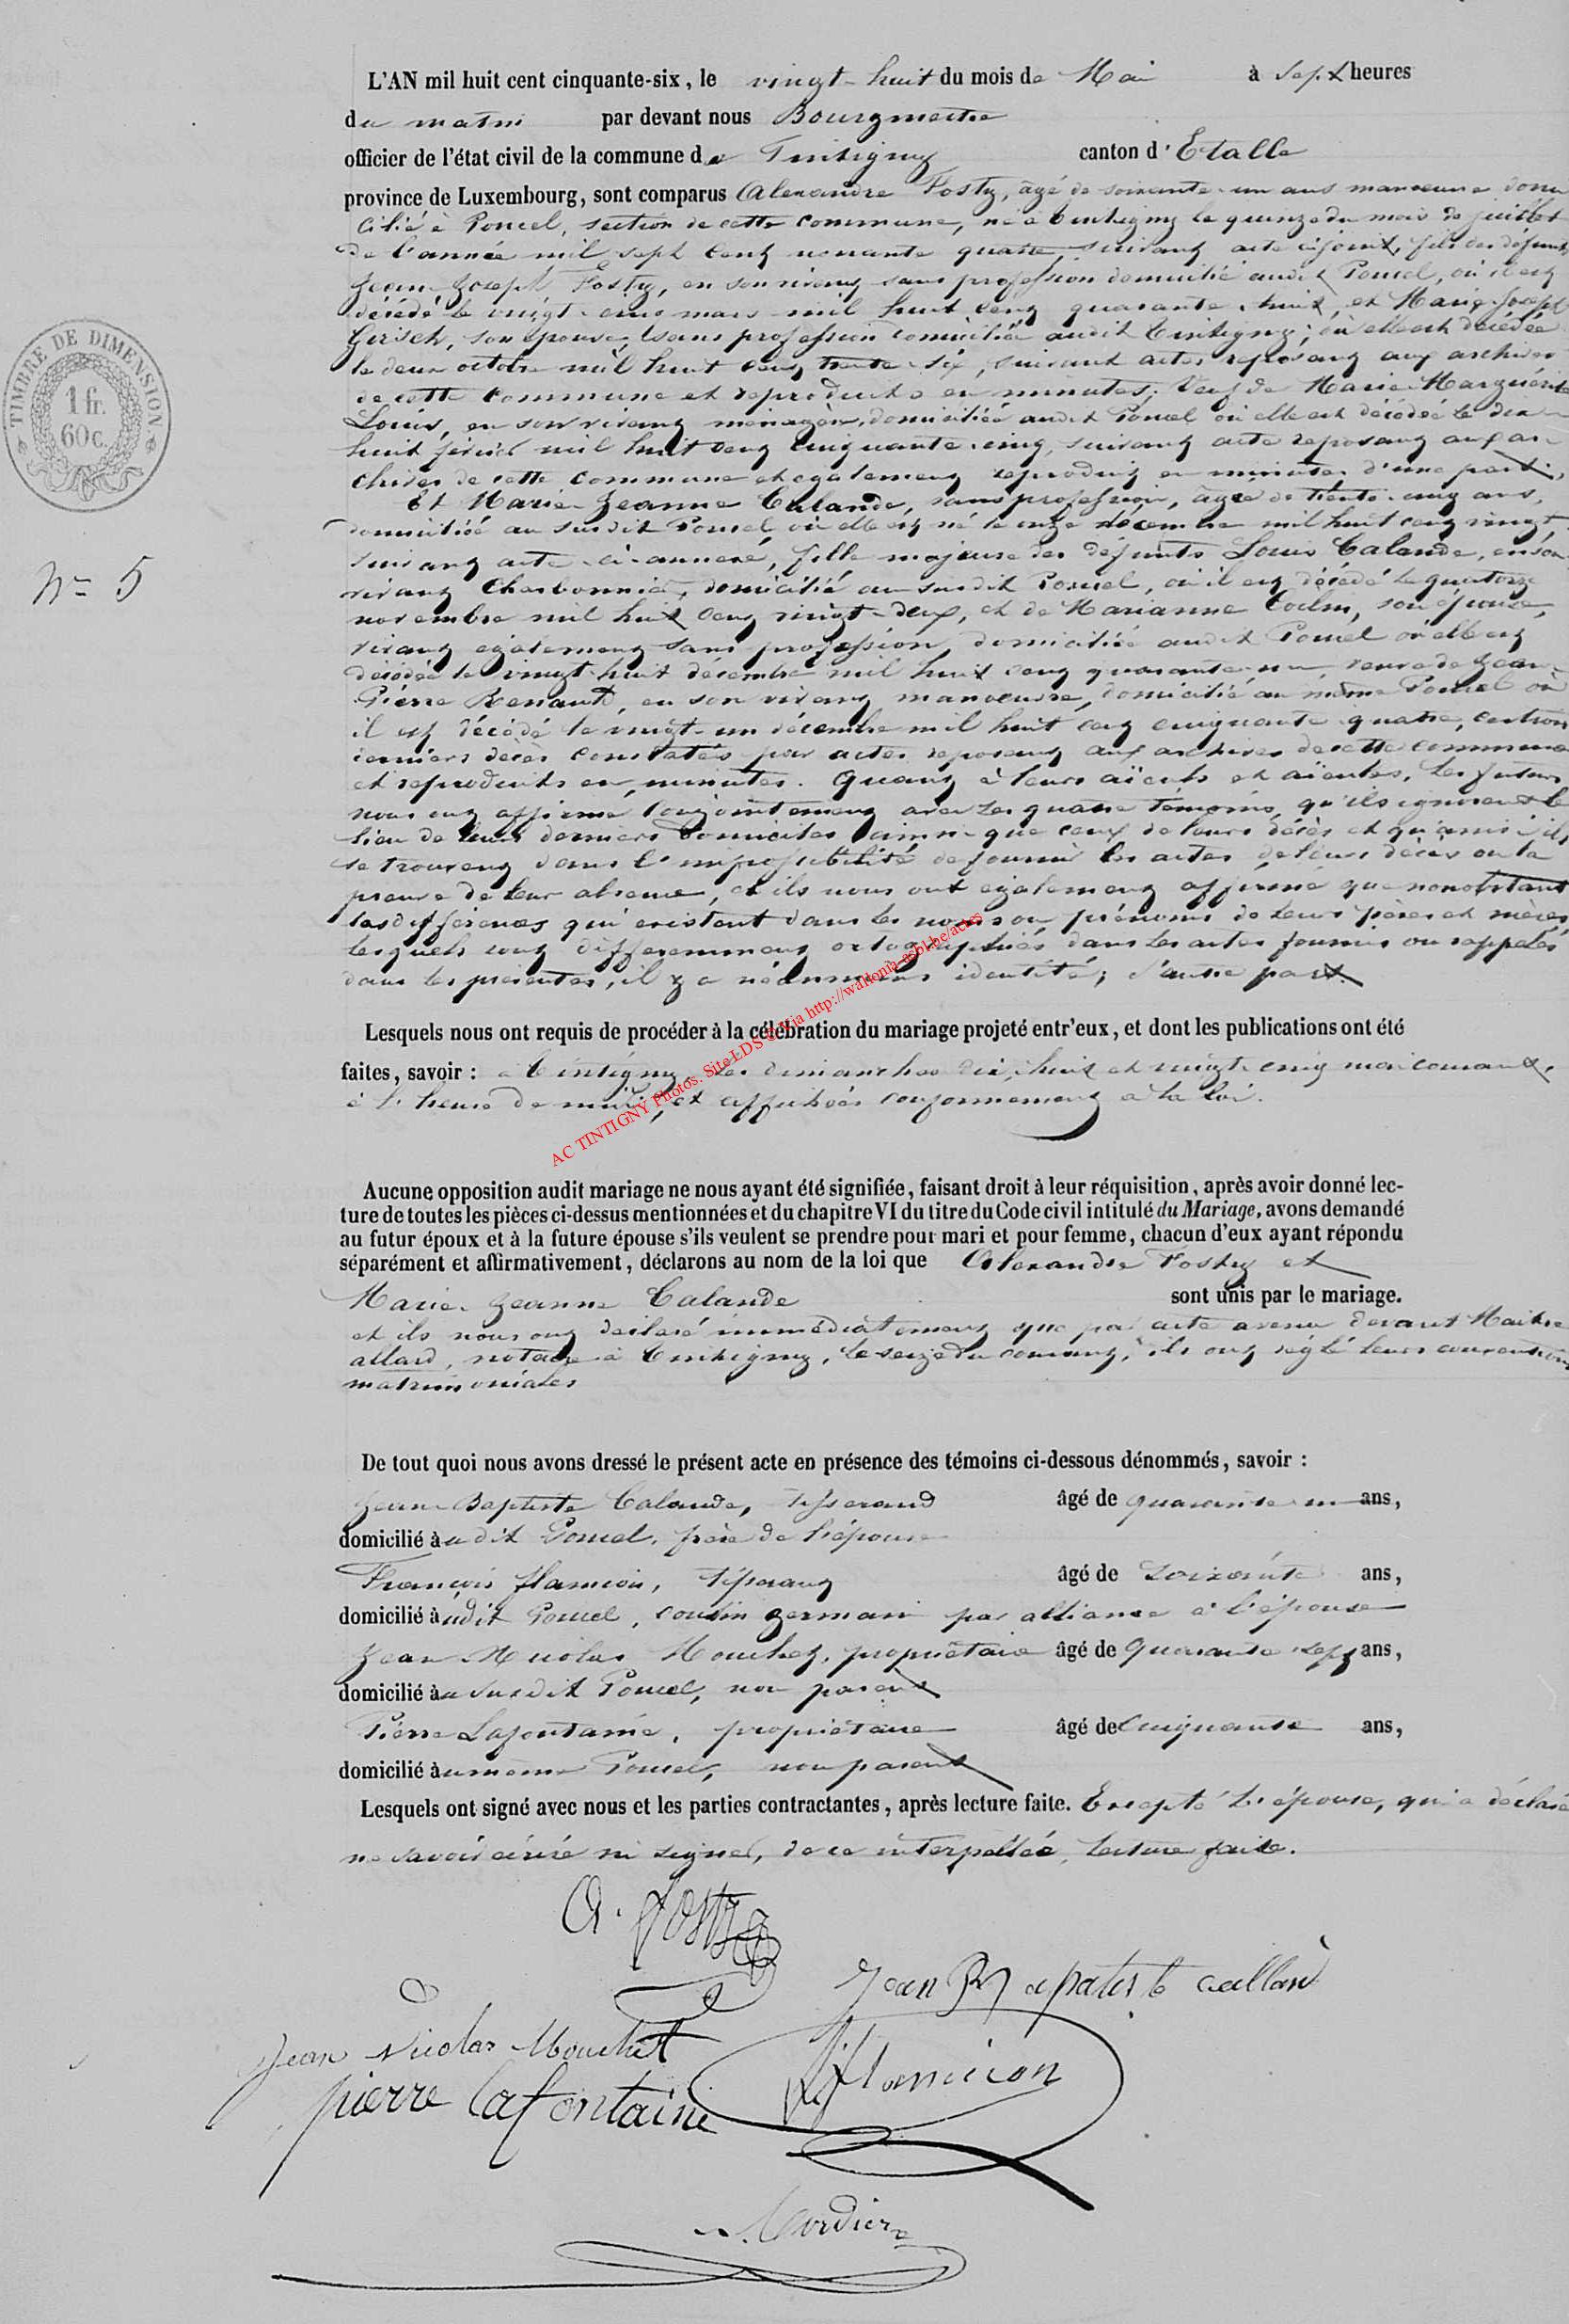 L'AN mil huit cent cinquante-six, le vingt-huit du mois de Mai à sept heures
du matin par devant nous Bourgmestre
officier de l'état civil de la commune de Tintigny canton d'Etalle
province de Luxembourg, sont comparus Alexandre Fosty, âgé de soixante-un ans manoeuvre domi
cilié à Poncel, section de cette commune, né à Tintigny le quinze du mois de juillet
de l'année mil sept cent nonante quatre, suivant acte ci joint, fils des défunts
Jean Joseph Fosty, en son vivant sans profession domicilié audit Poncel, où il est
décédé le vingt-cinq mars mil huit cent quarante-huit, et Marie Joseph
Gerisch, son épouse, sans profession domiciliée audit Tintigny, où elle est décédée
le deux octobre mil huit cent trente-six, suivant actes reposant aux archives
de cette commune et reproduits en minutes; Veuf de Marie Marguérite
Louis, en son vivant ménagère, domiciliée audit Poncel où elle est décédée le dix-
huit février mil huit cent cinquante-cinq, suivant acte reposant aux ar-
chives de cette commune et également reproduit en minutes d'une part.
Et Marie Jeanne Calande, sans profession, âgée de trente-cinq ans,
domiciliée au susdit Poncel, où elle est né le onze décembre mil huit cent vingt,
suivant acte ci-annexé, fille majeure des défunts Louis Calande, en son
vivant Charbonnier, domicilié au susdit Poncel, où il est décédé le quatorze
novembre mil huit cent vingt-deux, et de Marianne son épouse,
vivant également sans profession, domiciliée audit Poncel où elle est
décédée le vingt-huit décembre mil huit cent quarante-un, veuve de Jean-
Pierre Renauld, en son vivant manoeuvre, domicilié au même Poncel où
il est décédé le vingt-un décembre mil huit cent cinquante-quatre, ces trois
derniers décès constatés par actes reposant aux archives de cette commune
et reproduits en minutes. Quant à leurs aïeuls et aïeules, les futurs
nous ont affirmé conjointement avec les quatre témoins, qu'ils ignorent le
lieu de leurs derniers domiciles ainsi que ceux de leurs décès et qu'ainsi ils
se trouvent dans l'impossibilité de fournir les actes de leurs décès ou la
preuve de leur absence, et ils nous ont également affirmé que nonobstant
les différences qui existent dans les noms ou prénoms de leurs pères et mères,
lesquels sont différemment ortographiés dans les actes fournis ou rappelés
dans les présentes, il y a néanmoins identité; d'autre part.
Lesquels nous ont requis de procéder à la célébration du mariage projeté entr'eux, et dont les publications ont été
faites, savoir : à Tintigny, les dimanches dix-huit et vingt-cinq mai courant,
à l'heure de midi, et affichées conformément à la loi.
Aucune opposition audit mariage ne nous ayant été signifiée, faisant droit à leur réquisition, après avoir donné lec-
ture de toutes les pièces ci-dessus mentionnées et du chapitre VI du titre du Code civil intitulé du Mariage, avons demandé
au futur époux et à la future épouse s'ils veulent se prendre pour mari et pour femme, chacun d'eux ayant répondu
séparément et affirmativement, déclarons au nom de la loi que Alexandre Fosty et
Marie-Jeanne Calande sont unis par le mariage.
et ils nous ont déclaré immédiatement que par acte avenu devant Maitre
allard, notaire à Tintigny, le seize du courant, ils ont réglé leurs conventions
matrimoniales
De tout quoi nous avons dressé le présent acte en présence des témoins ci-dessous dénommés, savoir :
Jean Baptiste Calande, Tisserand âgé de quarante-un ans,
domicilié audit Poncel, frère de l'épouse
François flamion, Tisserand âgé de Soixante ans,
domicilié audit Poncel, cousin germain par alliance à l'épouse
Jean Nicolas Mouchet, propriétaire âgé de Quarante-sept ans,
domicilié au susdit Poncel, non parent
Pierre Lafontaine, propriétaire âgé de Cinquante ans,
domicilié au même Poncel, non parent
Lesquels ont signé avec nous et les parties contractantes, après lecture faite. Excepté l'épouse, qui a déclaré
ne savoir écrire ni signer, de ce interpellée, lecture faite.
A. Fosty
Jean Bapatiste calland
Jean Nicolas Mouchet
flamion
pierre lafontaine
TIMBRE DE DIMENSION
1 fr.
60 c.
N° 5
AC TINTIGNY Photos. Site LDS © Via http://wallonia-asbl.be/actes